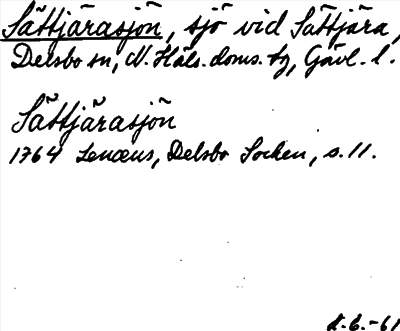 Sättjärasjön, sjö vid Sättjära,
Delsbo sn, N. Häls. doms. tg, Gävl. l.
Sättjärasjön
1764 Lenæus, Delsbo Socken, s. 11.